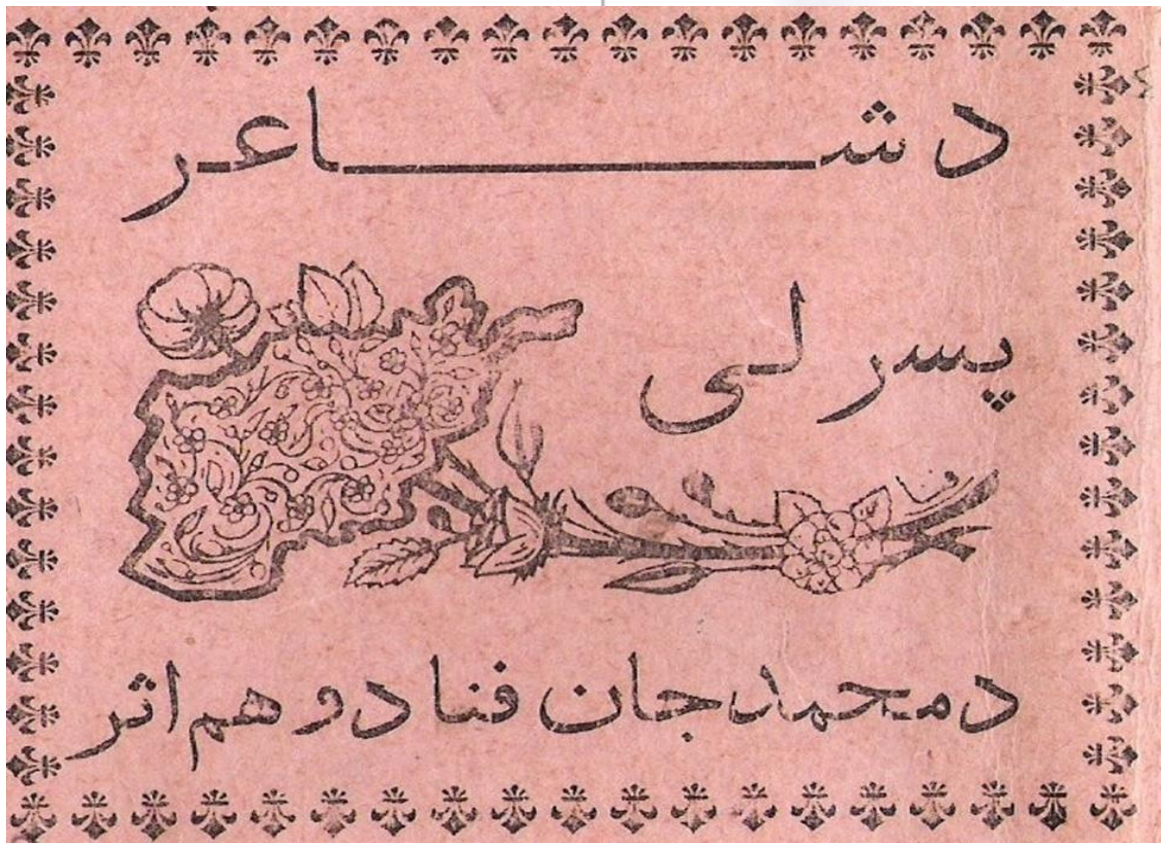 د شاعر
پسرلی
فنا
د محمد جان فنا دوهم اثر